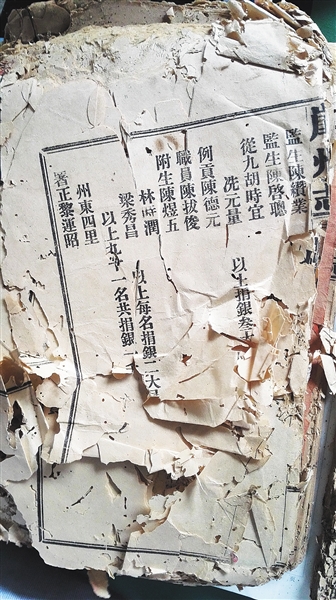 崖州志
監生陳纘業
監生陳啓聰
從九胡時宜
冼元量
以上捐銀叁
例貢陳德元
職員陳拔俊
附生陳煜五
林 潤
以上每名捐銀二大
梁秀昌
以上 一名共捐銀
州東四里
耆正黎連昭